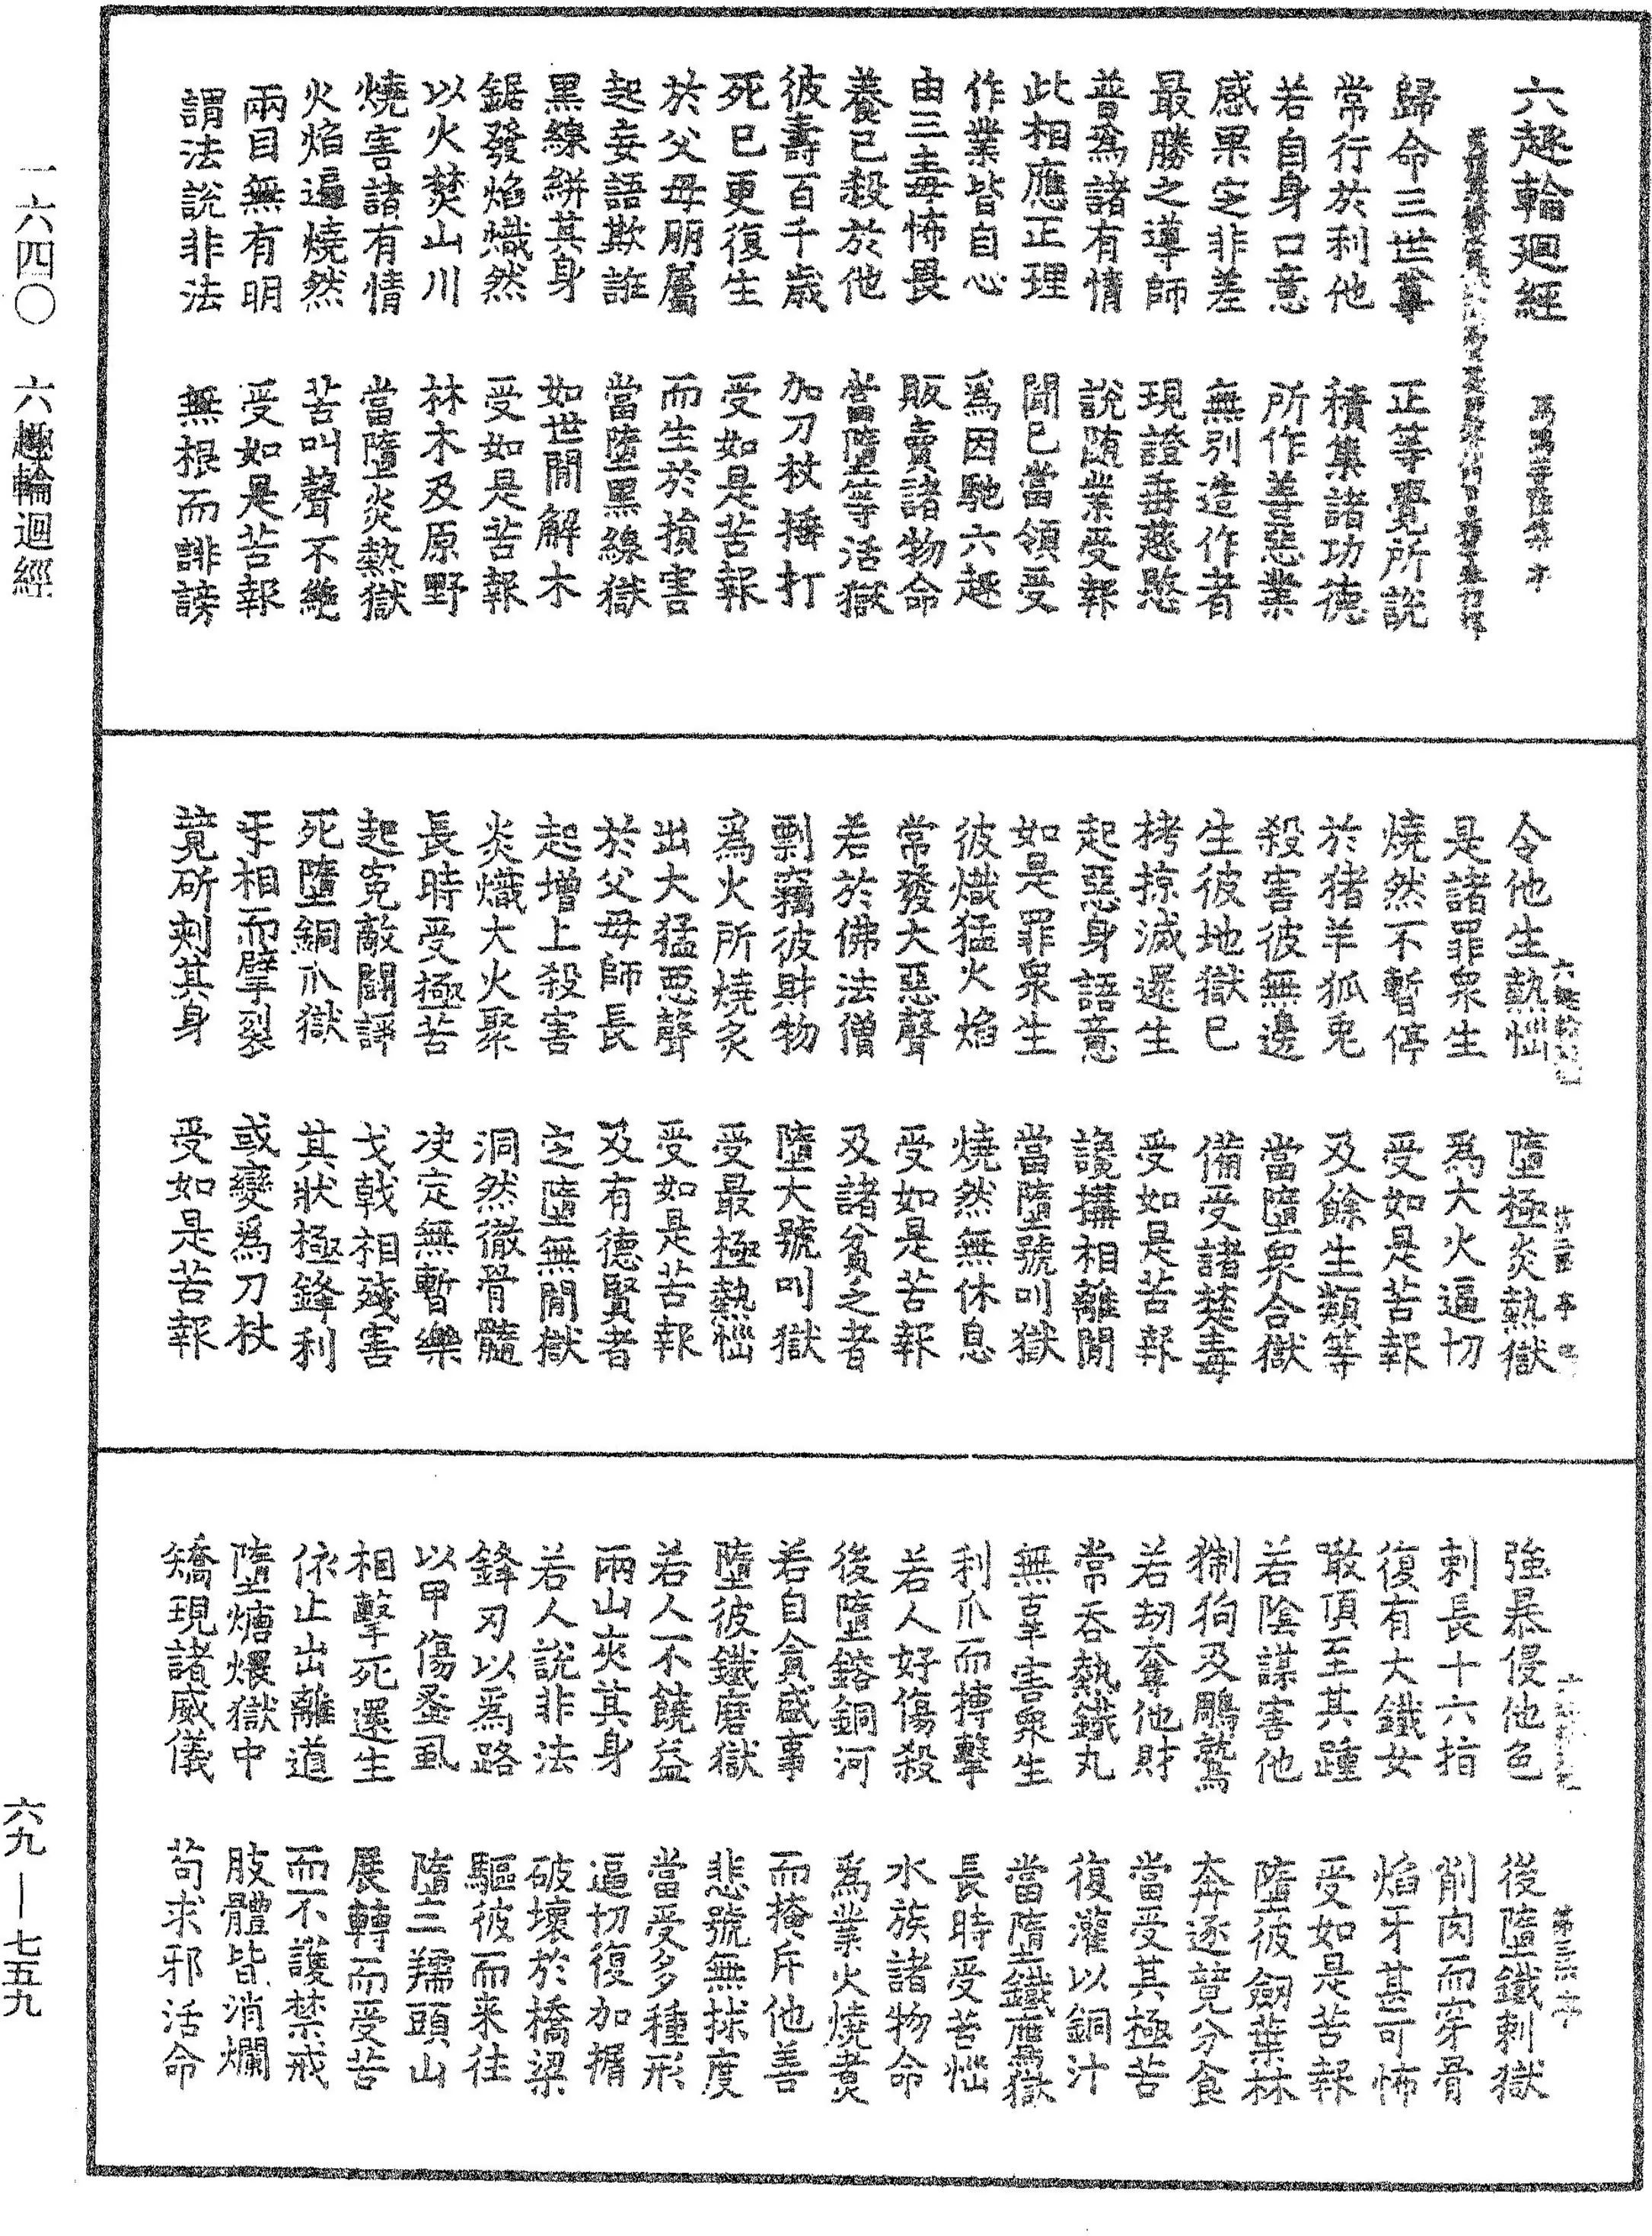 六趣輪迴經
歸命三世尊　正等覺所說
常行於利他　積集諸功德
若自身口意　所作善惡業
感果定非差　無別造作者
最勝之導師　現證垂慈愍
普爲諸有情　說随業受報
此相應正理　聞已當領受
作業皆自心　爲因馳六趣
由三毒怖畏　販賣諸物命
養已殺於他　當墮等活獄
彼壽百千歲　加刀杖捶打
死已更復生　受如是苦報
於父母朋屬　而生於損害
起妄語欺誑　當墮黑線獄
黑線絣其身　如世間解木
鋸發焰熾然　受如是苦報
以火焚山川　林木及原野
燒害諸有情　當墮炎熱獄
火焰遍燒然　苦叫聲不絶
兩目無有明　受如是苦報
謂法說非法　無根而誹謗
令他生熱惱　墮極炎熱獄
是諸罪衆生　爲大火逼切
燒然不暫停　受如是苦報
於猪羊狐兎　及餘生類等
殺害彼無邊　當墮衆合獄
生彼地獄已　備受諸楚毒
拷掠滅還生　受如是苦報
起惡身語意　讒搆相離間
如是罪衆生　當墮號叫獄
彼熾猛火焰　燒然無休息
常發大惡聲　受如是苦報
若於佛法僧　及諸貧乏者
剽竊彼財物　墮大號叫獄
爲火所燒炙　受最極熱惱
出大猛惡聲　受如是苦報
於父母師長　及有德賢者
起增上殺害　定墮無間獄
炎熾大火聚　洞然徹骨髓
長時受極苦　決定無暫樂
起寃敵鬪諍　戈戟相殘害
死墮銅爪獄　其狀極鋒利
手相而擘裂　或變爲刀杖
競斫刺其身　受如是苦報
強暴侵他色　後墮鐵刺獄
刺長十六指　削肉而穿骨
復有大鐵女　焰牙甚可怖
噉頂至其踵　受如是苦報
若陰謀害他　墮彼劒葉林
猘狗及鵰鷲　奔逐競分食
若劫奪他財　當受其極苦
常吞熱鐵丸　復灌以銅汁
無辜害衆生　當墮鐵鷹獄
利爪而摶擊　長時受苦惱
若人好傷殺　水族諸物命
後墮鎔銅河　爲業火燒煑
若自貪盛事　而掩斥他善
墮彼鐵磨獄　悲號無捄度
若人不饒益　當受多種形
兩山夾其身　逼切復加搌
若人說非法　破壞於橋梁
鋒刃以爲路　驅彼而来往
以甲傷蚤虱　墮三羺頭山
相擊死還生　展轉而受苦
依止出離道　而不護禁戒
墮煻煨獄中　肢體皆消爛
矯現諸威儀　苟求邪活命
一六四〇　六趣輪迴經
六九—七五九